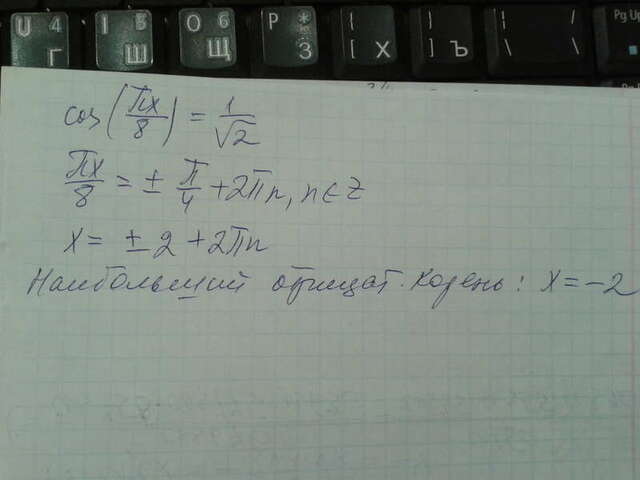 U 4 Г I 5 Ш O 6 Щ P * З { [ Х } ] Ъ | / \ \ Pg Up
cos(πx/8) = 1/√2
πx/8 = ± π/4 + 2πn, n∈Z
x = ± 2 + 2πn
Наибольший отрицат. корень: x = -2